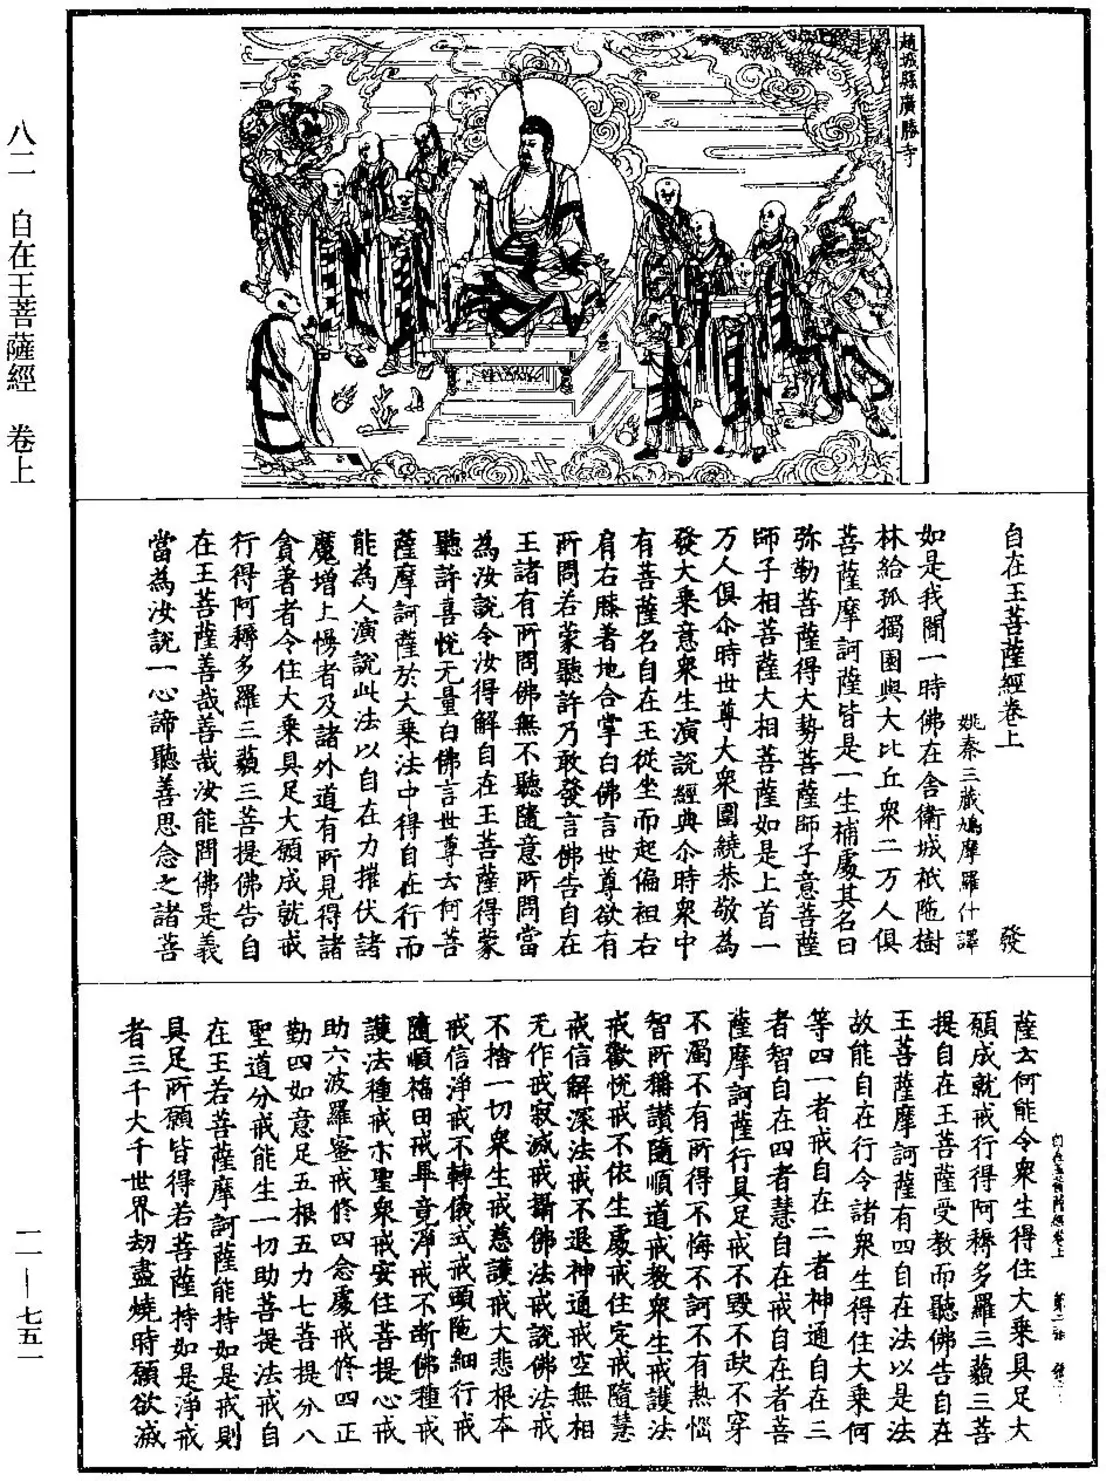 八二 自在王菩薩經 卷上
一一—七五一
趙城縣廣勝寺
自在王菩薩經卷上 發
姚秦三藏鳩摩羅什譯
如是我聞一時佛在舍衛城祇陁樹
林給孤獨園與大比丘衆二万人俱
菩薩摩訶薩皆是一生補處其名曰
弥勒菩薩得大勢菩薩師子意菩薩
師子相菩薩大相菩薩如是上首一
万人俱尒時世尊大衆圍繞恭敬為
發大乘意衆生演說經典尒時衆中
有菩薩名自在王從坐而起偏袒右
肩右膝著地合掌白佛言世尊欲有
所問若蒙聽許乃敢發言佛告自在
王諸有所問佛無不聽隨意所問當
為汝說令汝得解自在王菩薩得蒙
聽許喜悅无量白佛言世尊云何菩
薩摩訶薩於大乘法中得自在行而
能為人演說此法以自在力摧伏諸
魔增上慢者及諸外道有所見得諸
貪著者令住大乘具足大願成就戒
行得阿耨多羅三藐三菩提佛告自
在王菩薩善哉善哉汝能問佛是義
當為汝說一心諦聽善思念之諸菩
薩云何能令衆生得住大乘具足大
願成就戒行得阿耨多羅三藐三菩
提自在王菩薩受教而聽佛告自在
王菩薩摩訶薩有四自在法以是法
故能自在行令諸衆生得住大乘何
等四一者戒自在二者神通自在三
者智自在四者慧自在戒自在者菩
薩摩訶薩行具足戒不毀不缺不穿
不濁不有所得不悔不訶不有熱惱
智所稱讃隨順道戒教衆生戒護法
戒歡悅戒不依生處戒住定戒隨慧
戒信解深法戒不退神通戒空無相
无作戒寂滅戒攝佛法戒說佛法戒
不捨一切衆生戒慈護戒大悲根本
戒信淨戒不轉儀式戒頭陁細行戒
隨順福田戒畢竟淨戒不断佛種戒
護法種戒示聖衆戒安住菩提心戒
助六波羅蜜戒修四念處戒修四正
勤四如意足五根五力七菩提分八
聖道分戒能生一切助菩提法戒自
在王若菩薩摩訶薩能持如是戒則
具足所願皆得若菩薩持如是淨戒
者三千大千世界劫盡燒時願欲滅